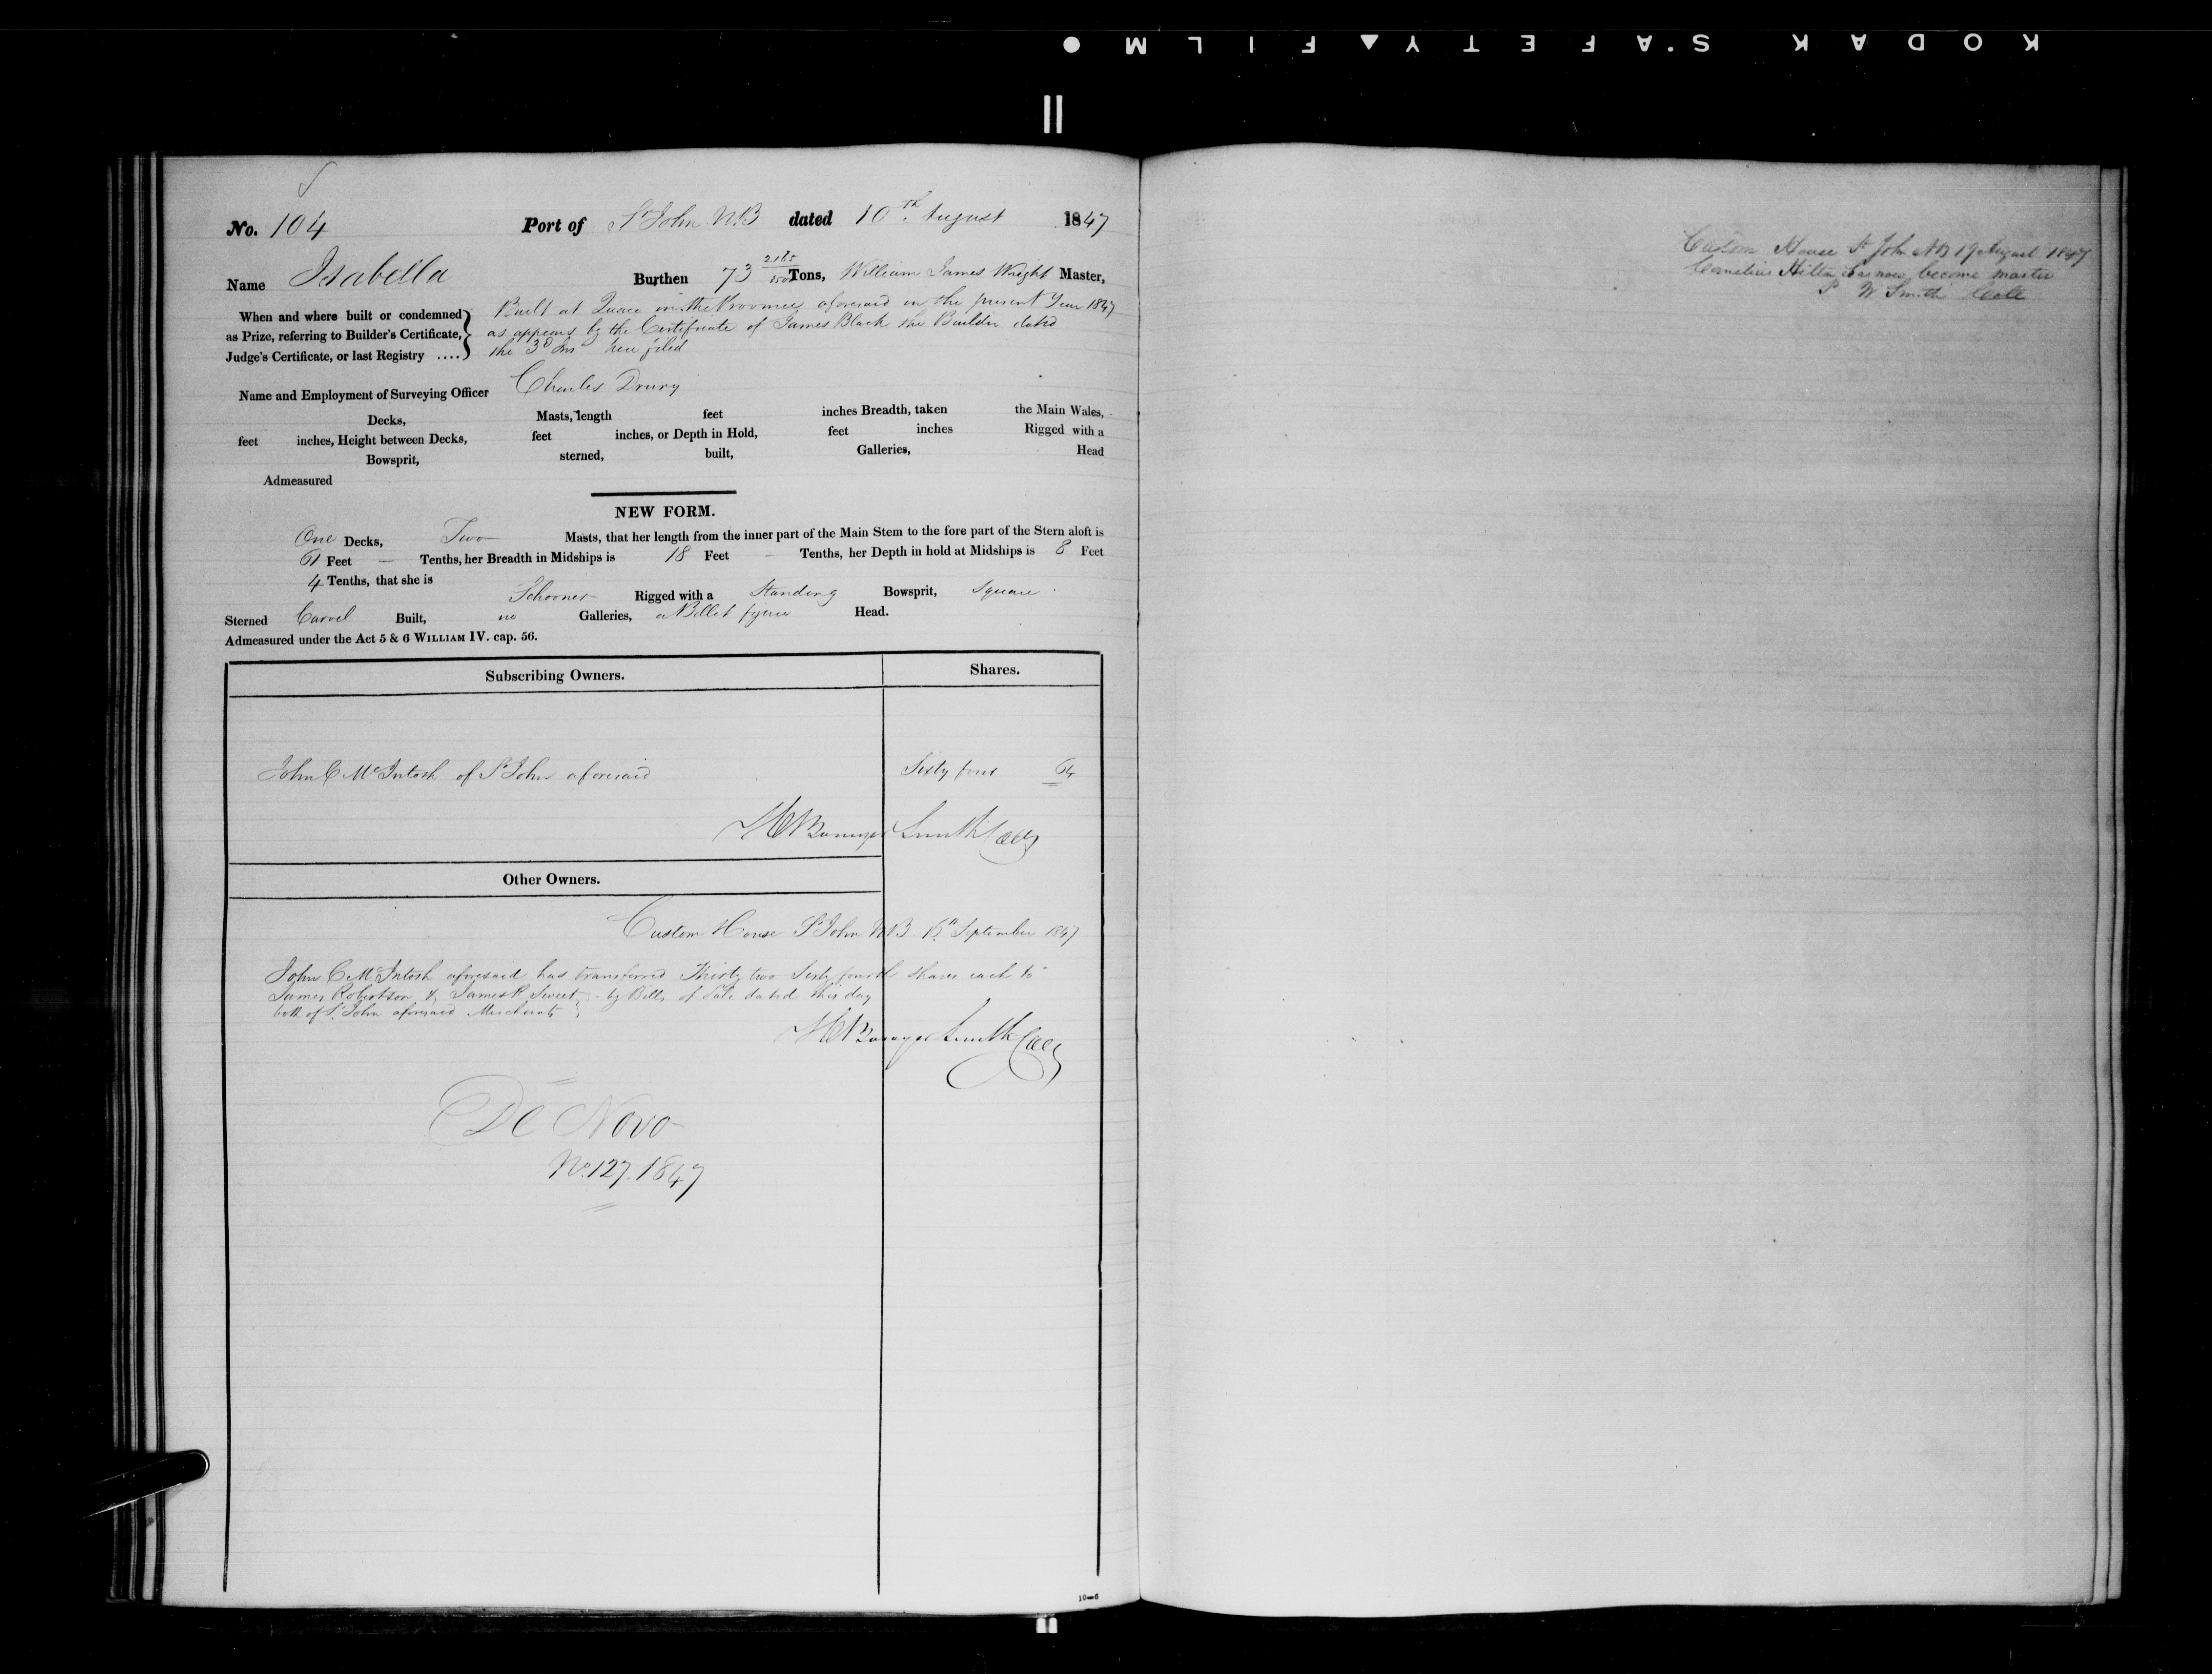 KODAK SAFETY FILM
No. 104 Port of St John NB dated 10th August 1847
Name Isabella Burthen 73 Tons, William James Wright Master,
When and where built or condemned as Prize, referring to Builder's Certificate, Judge's Certificate, or last Registry ....
Built at Quaco in the Province aforesaid in the present Year 1847
as appears by the Certificate of James Black the Builder dated
the 3d Ins here filed
Name and Employment of Surveying Officer Charles Drury
Decks, Masts, length feet inches Breadth, taken the Main Wales,
feet inches, Height between Decks, feet inches, or Depth in Hold, feet inches Rigged with a
Bowsprit, sterned, built, Galleries, Head
Admeasured
NEW FORM.
One Decks, Two Masts, that her length from the inner part of the Main Stem to the fore part of the Stern aloft is
61 Feet — Tenths, her Breadth in Midships is 18 Feet — Tenths, her Depth in hold at Midships is 8 Feet
4 Tenths, that she is
Schooner Rigged with a Standing Bowsprit, Square
Sterned Carvel Built, no Galleries, a Billet figure Head.
Admeasured under the Act 5 & 6 WILLIAM IV. cap. 56.
Subscribing Owners. Shares.
John C McIntosh of St John aforesaid Sixty four 64
Smith
Other Owners.
Custom House St John NB 15th September 1847
John C McIntosh aforesaid has transferred Thirty two Sixty fourth Shares each to
James Robertson & James R Sweet by Bills of Sale dated this day
both of St John aforesaid Merchants
Smith
De Novo
No. 127. 1847
10—6
Custom House St John NB 19 August 1847
Cornelius Hilton has now become master
W Smith